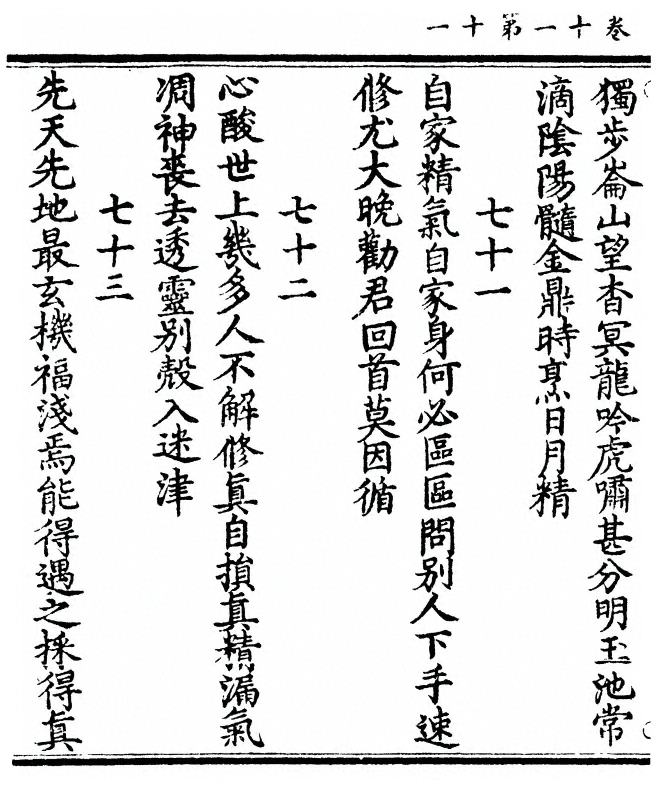 卷十一第十一
獨步崙山望杳冥龍吟虎嘯甚分明玉池常
滴陰陽髓金鼎時烹日月精
七十一
自家精氣自家身何必區區問別人下手速
修尤大晚勸君回首莫因循
七十二
心酸世上幾多人不解修眞自損眞精漏氣
凋神喪去透靈別殼入迷津
七十三
先天先地最玄機福淺焉能得遇之採得眞